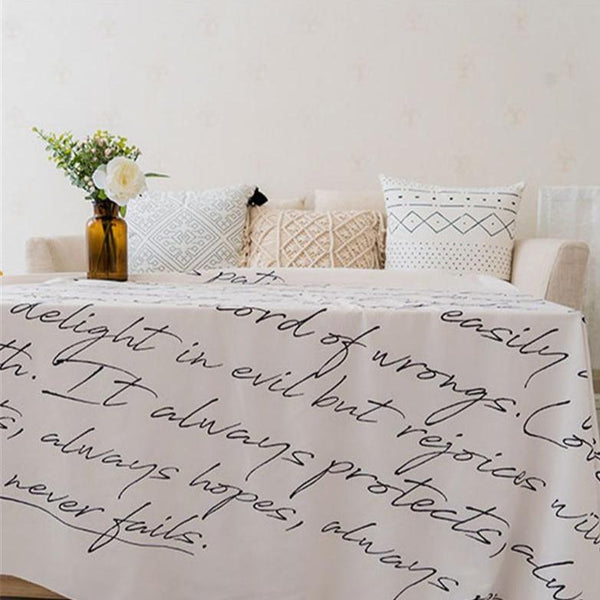 pat
easily
delight in evil but rejoices with
cord of wrongs. Love
th. It always protects, alw
s, always hopes, always
never fails.